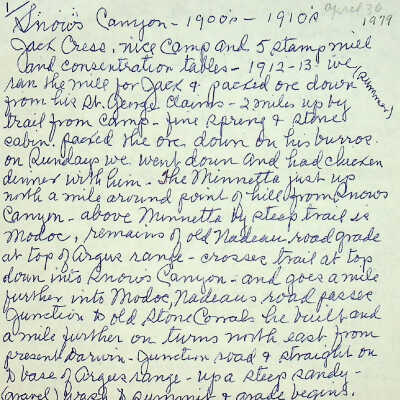 1/
April 30
1979
Snow's Canyon - 1900's - 1910's
Jack Cress, nice camp and 5 stamp mill
and consentration tables - 1912-13 - we
(summer)
ran the mill for Jack & packed ore down
from his St. George Claims - 2 miles up by
trail from camp - fine spring & stone
cabin. packed the ore down on his burros.
on Sundays we went down and had chicken
dinner with him - The Minnetta just up
north a mile around point of hill from Snows
Canyon - above Minnetta by steep trail is
Modoc, remains of old Nadeau road grade
at top of Argus range - crosses trail at top
down into Snows Canyon - and goes a mile
further into Modoc, Nadeaus road passes
Junction to old Stone Corrals he built and
a mile further on turns north east from
present Darwin - Junction road & straight on
to base of Argus range - up a steep sandy -
(gravel) wash to summit & grade begins.